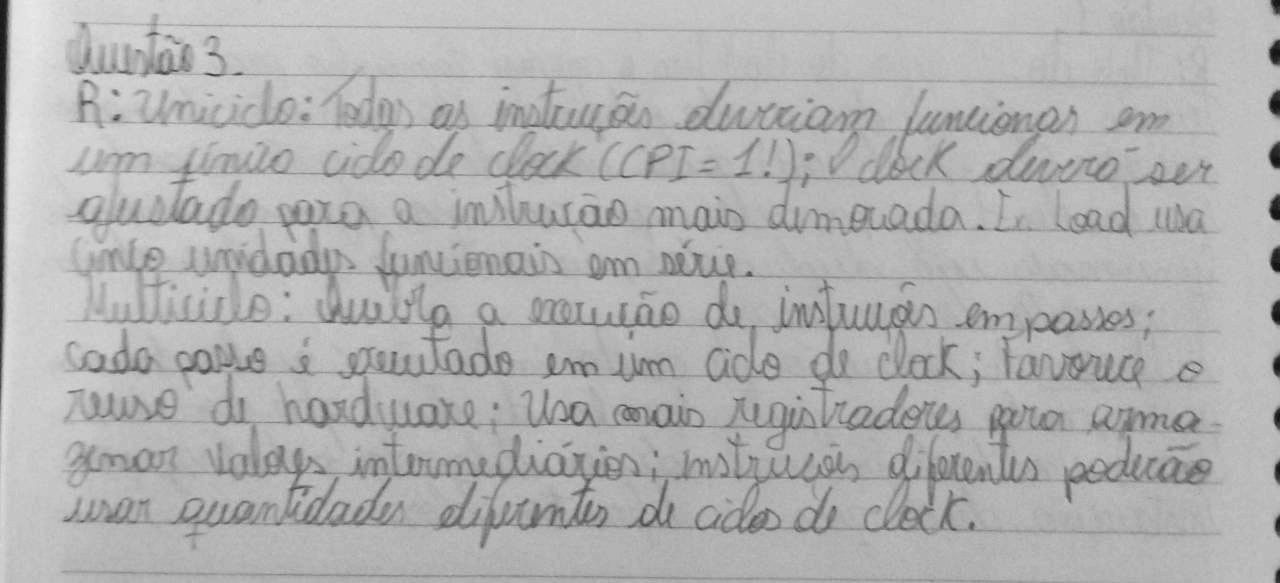 Questão 3.
R: Uniciclo: Todas as instruções deveriam funcionar em
um único ciclo de clock (CPI = 1!); O clock deverá ser
ajustado para a instrução mais demorada. Load usa
cinco unidades funcionais em série.
Multiciclo: Quebra a execução de instruções em passos;
cada passo é executado em um ciclo de clock; Favorece o
reuso de hardware; Usa mais registradores para arma-
zenar valores intermediários; instruções diferentes poderão
usar quantidades diferentes de ciclos de clock.